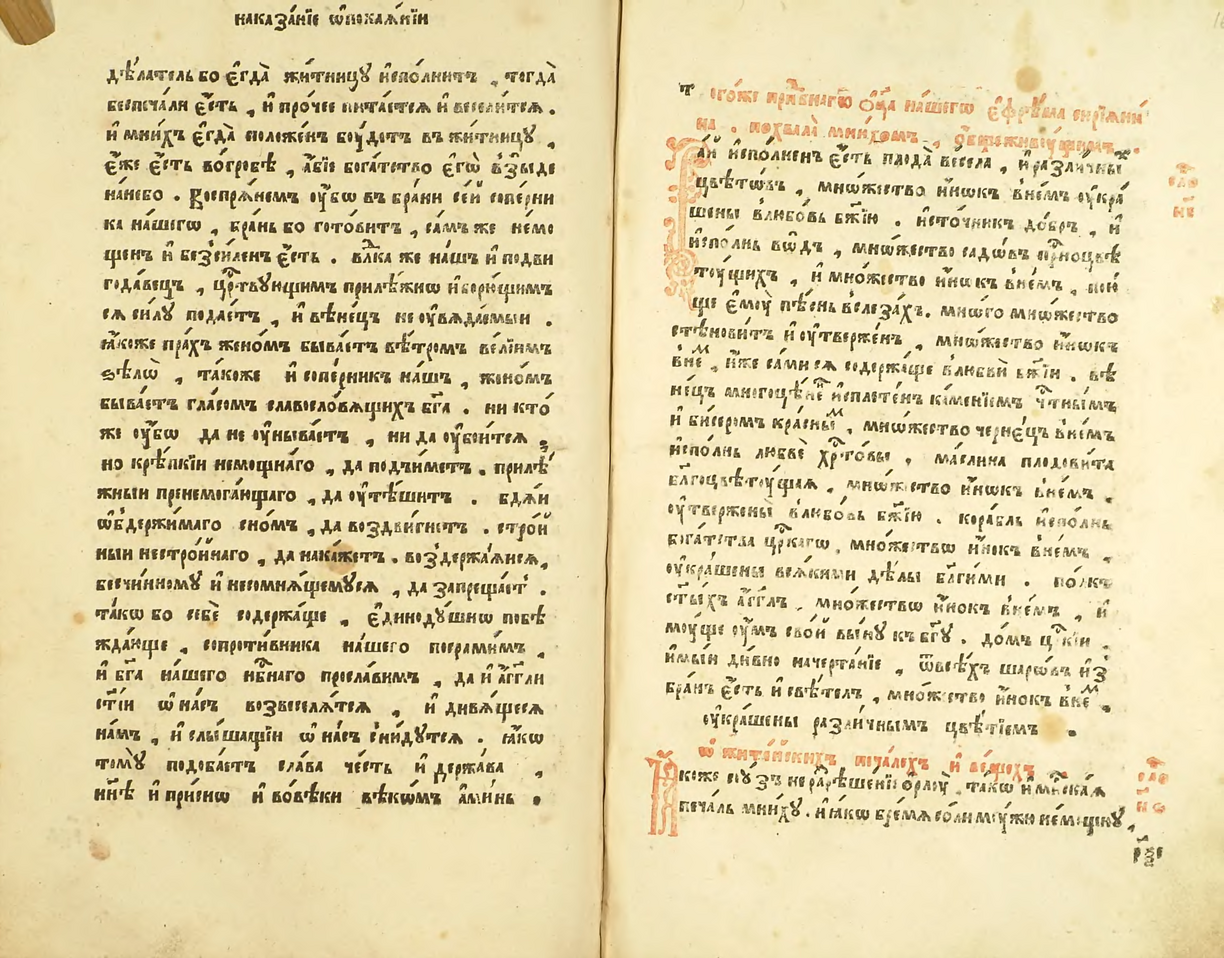 наказа́нїе ѡ҆покаѧ́нїи
дѣ́латель бо є҆гда̀ жи́тницꙋ и҆спо́лнитъ , тогда̀
беспеча́лѧ є҆́сть , и҆ про́чее пита́етсѧ и҆ весели́тсѧ .
и҆ мни́хъ є҆гда̀ положе́нъ бꙋ́детъ въ жи́тницꙋ ,
є҆́же є҆́сть во́гробѣ , а҆́бїе бога́тство є҆гѡ̀ взы́де
на́небо . воспрѧ́немъ ᲂу҆́бѡ въ бра́ни се́й сопе́рни
ка на́шегѡ , бра́нь бо гото́витъ , са́мъ же немо
ще́нъ и҆ безси́ленъ є҆́сть . влⷣка же на́шъ и҆ подви
года́вецъ , црⷭ҇твꙋющимъ приле́жнѡ и҆ борю́щимъ
сѧ си́лꙋ пода́етъ , и҆ вѣне́цъ не ᲂу҆вѧда́емыи .
ꙗ҆́коже пра́хъ жено́мъ быва́етъ вѣ́тромъ ве́лїимъ
ѕѣлѡ̀ , та́коже и҆ сопе́рникъ на́шъ , жено́мъ
быва́етъ гла́сомъ славосло́вѧщихъ бг҃а . ни кто́
же ᲂу҆́бѡ да не ᲂу҆ныва́етъ , ни да ᲂу҆бои́тсѧ ,
но крѣ́пкїи немощна́го , да под̾и́метъ . приле́
жныи пренемога́ющаго , да ᲂу҆тѣ́шитъ . бдѧ́и
ѡ҆бдержи́маго сно́мъ , да воздви́гнетъ . строй
ныи нестро́йнаго , да нака́жетъ . воздержа́ѧисѧ ,
бесчи́нномꙋ и҆ несомнѧ́щемꙋсѧ , да запреща́етъ .
та́кѡ бо себѐ содержа́ще , є҆динодꙋ́шнѡ побѣ
жда́юще , сопроти́вника на́шего посрами́мъ ,
и҆ бг҃а на́шего нб҃наго просла́вимъ , да и҆ а҆́гг҃ли
ст҃і́и ѡ҆ на́съ возвеселѧ́тсѧ , и҆ дивѧ́щесѧ
на́мъ , и҆ слы́шащїи ѡ҆ на́съ сни́дутсѧ . ꙗ҆́кѡ
томꙋ̀ подоба́етъ сла́ва че́сть и҆ держа́ва ,
нн҃ѣ и҆ при́снѡ и҆ во́вѣки вѣкѡ́мъ а҆ми́нь .
тогѡ́же прпⷣбнагѡ ѻ҆ц҃а на́шегѡ є҆фре́ма сирїѧни́
на . похвала̀ мни́хомъ ,
Ра́й и҆спо́лненъ є҆́сть плода̀ ве́села , и҆ разли́чныхъ
цвѣтѡ́въ , мно́жество и҆́нѡкъ вне́мъ ᲂу҆кра́
шены̀ влюбо́вь бж҃їю . и҆сто́чникъ до́бръ , и҆
и҆спо́лнь вѡ́дъ , мнѡ́жество садѡ́въ прⷭ҇ноцвѣ
тꙋ́щихъ , и҆ мно́жество и҆́нокъ вне́мъ , пою́
ще є҆мꙋ̀ пѣ́снь вслеза́хъ . мно́го мнѡ́жество
стѣнови́тъ и҆ ᲂу҆твержде́нъ , мнѡ́жество и҆́нѡкъ
внеⷨ , и҆́же са́ми сѧ содержа́ще влюбви̂ бж҃їи . вѣ
не́цъ многоцѣ́нне и҆сплете́нъ ка́менїемъ чⷭ҇тны́мъ
и҆ би́серомъ кра́сныⷨ , мно́жество черне́цъ вне́мъ
и҆спо́лнь любвѐ хрⷭ҇то́вы . ма́слина плодови́та
бл҃гоцвѣтꙋ́щаѧ , мно́жество и҆́нѡкъ вне́мъ .
ᲂу҆твержены̀ влюбо́вь бж҃їю . кора́бль и҆спо́лнь
бога́тства црⷭ҇кагѡ , мно́жествѡ и҆́нокъ вне́мъ ,
ᲂу҆кра́шены всѧ́кими дѣ́лы бл҃ги́ми . по́лкъ
ст҃ы́хъ а҆́гг҃лъ , мно́жествѡ и҆́нокъ вне́мъ , и҆
мꙋ́ще ᲂу҆́мъ сво́й вы́нꙋ къ бг҃ꙋ . до́мъ црⷭ҇кїи ,
и҆мы́и ди́вно начерта́нїе , ѿвсѣ́хъ шарѡ́въ и҆з̾
бра́нъ є҆́сть и҆ свѣ́телъ , мно́жество и҆́нокъ внеⷨ ,
ᲂу҆кра́шены разли́чнымъ цвѣ́тїемъ .
ѡ҆ жите́йскихъ печа́лехъ и҆ ве́щехъ .
Ꙗ҆́коже сѹ́зъ неразрѣше́нїи ѻ҆рлꙋ̀ . та́кѡ и҆ мирска́ѧ
печа́ль мни́хꙋ . и҆ ꙗ҆́кѡ бре́мѧ со́ли мꙋ́жꙋ не́мощнꙋ ,